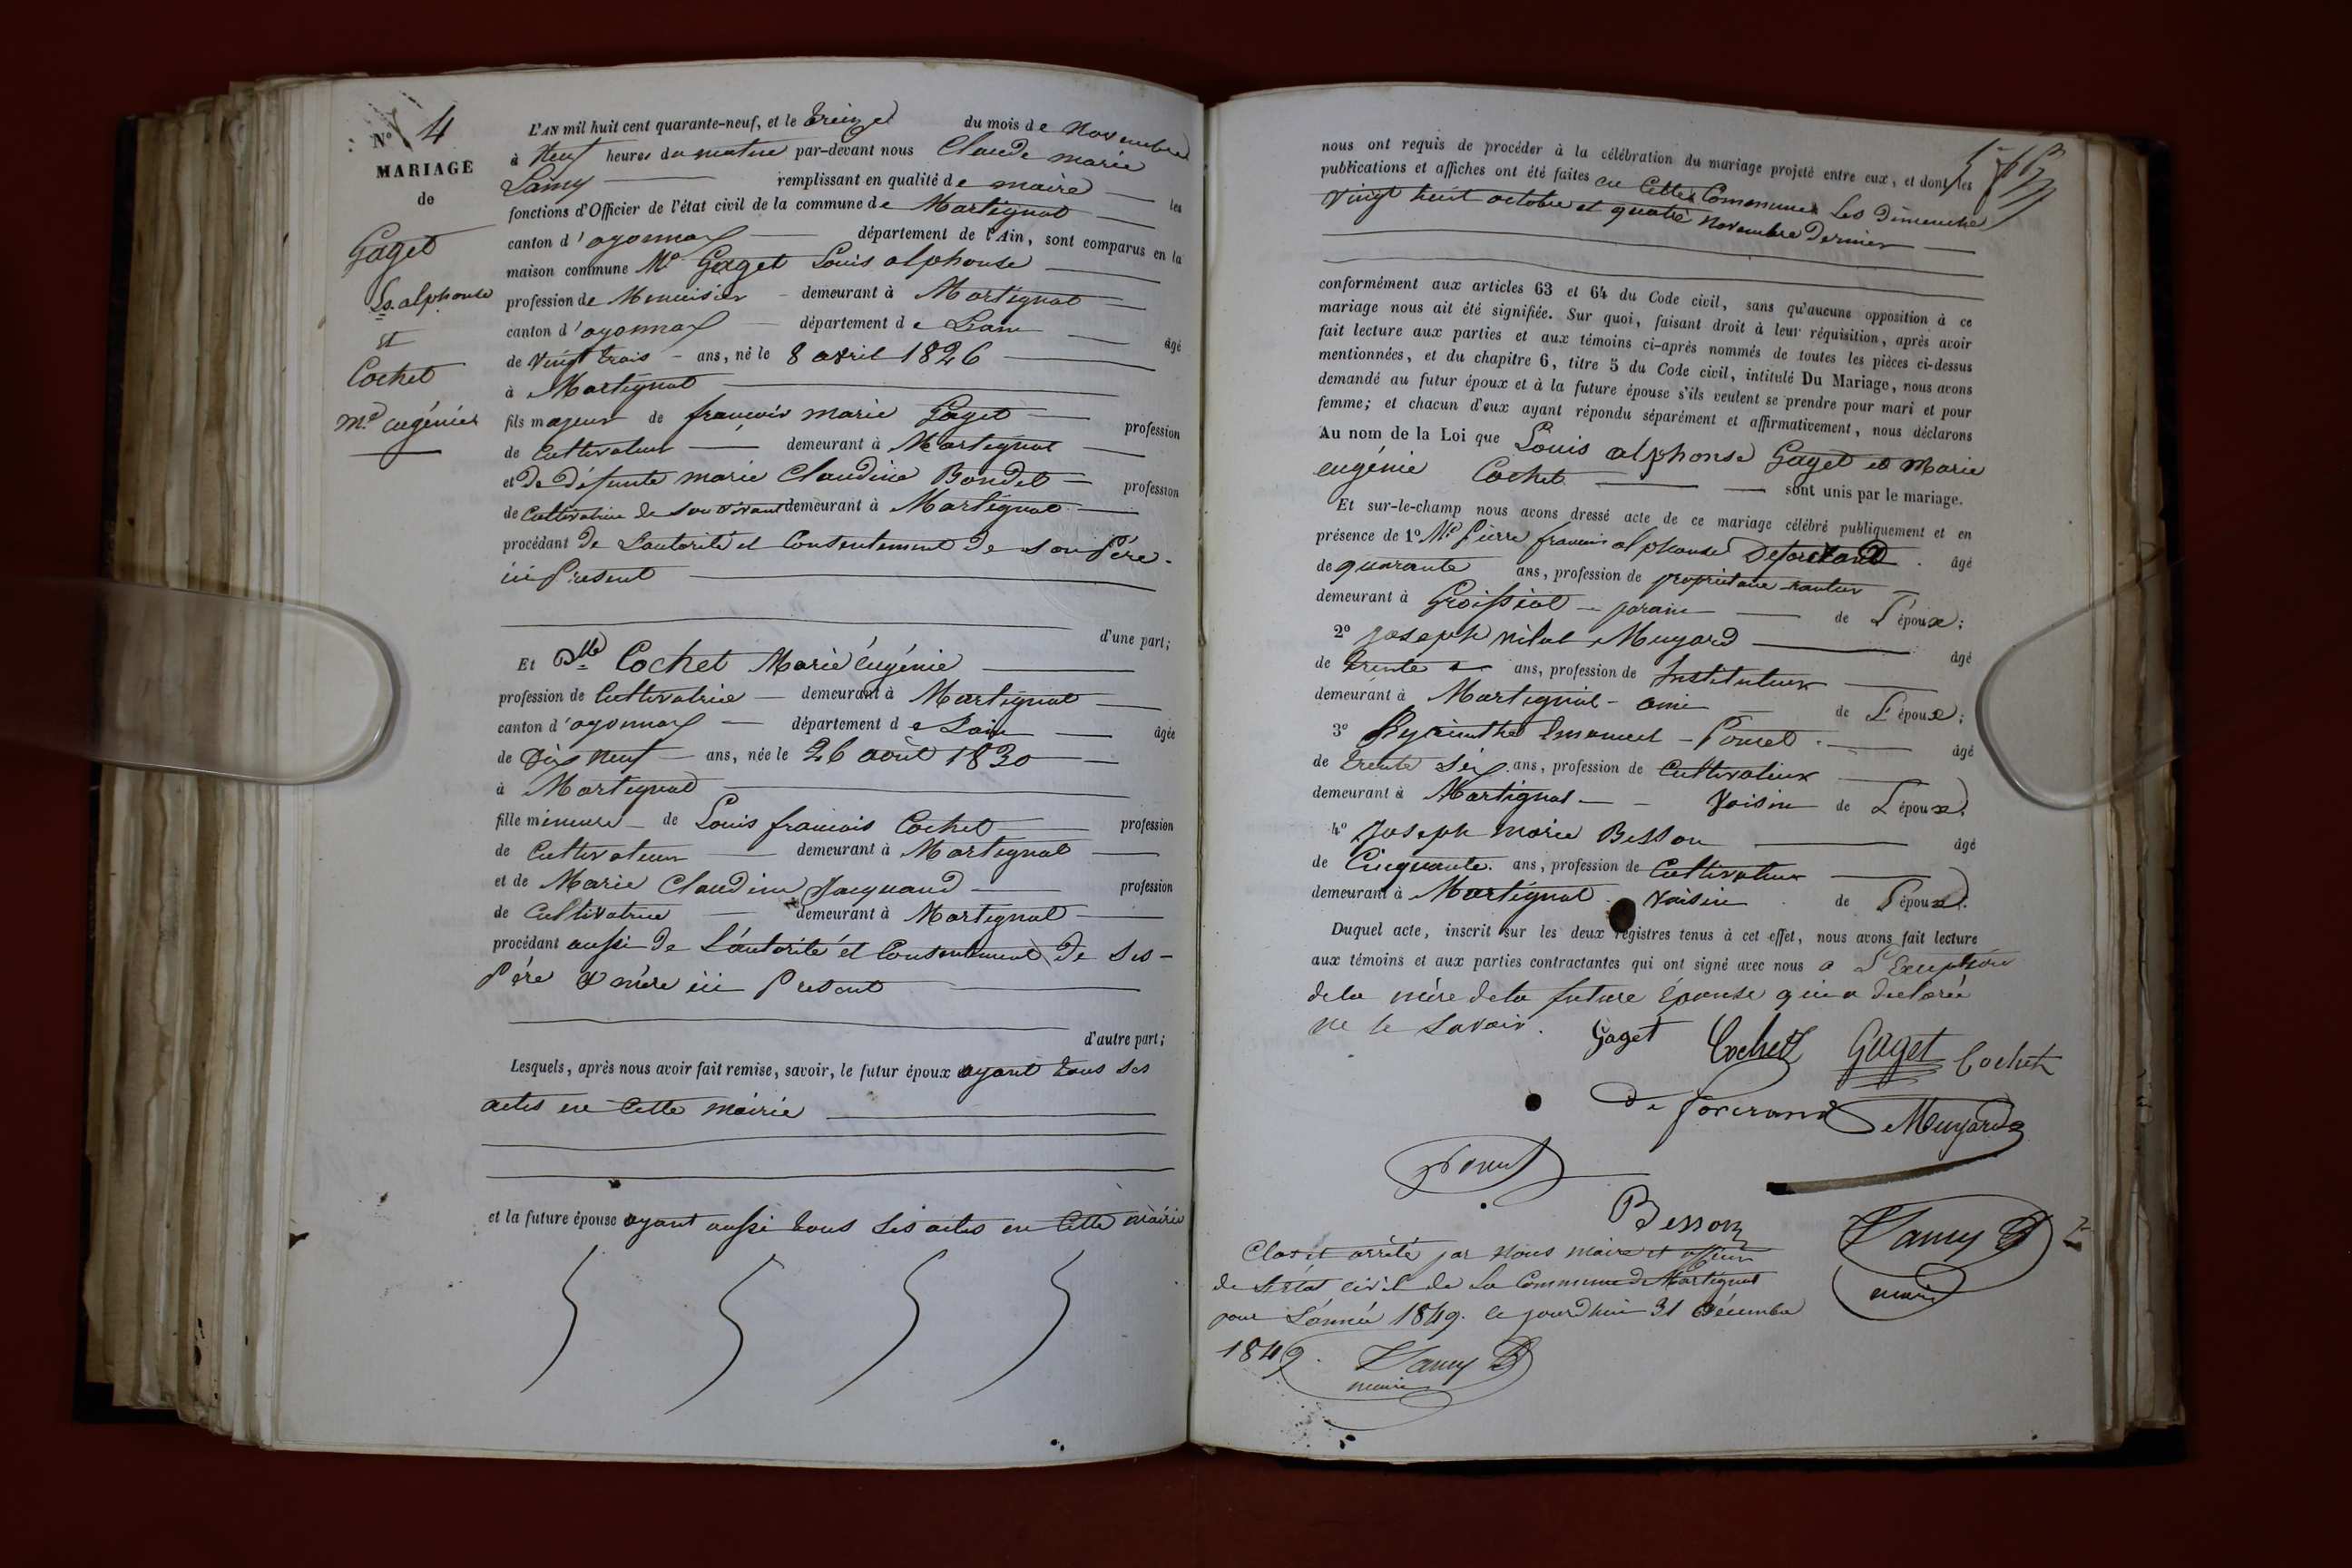 N° 4
MARIAGE
de
Gaget
Ls. alphonse
et
Cochet
Me. eugénie
L'AN mil huit cent quarante-neuf, et le treize du mois de Novembre
à Neuf heures du matin par-devant nous Claude marie
Lamy remplissant en qualité de maire les
fonctions d'Officier de l'état civil de la commune de Martignat
canton d'oyonnax département de l'Ain, sont comparus en la
maison commune Mr Gaget Louis alphonse
profession de Menuisier demeurant à Martignat
canton d'oyonnax département de Lain âgé
de vingt trois ans, né le 8 avril 1826
à Martignat
fils majeur de françois marie Gaget profession
de Cultivateur demeurant à Martignat
et de défunte marie Claudine Bondet profession
de Cultivatrice de son vivant demeurant à Martignat
procédant de Lautorité et Consentement de son Père
ici Présent
d'une part;
Et Dlle Cochet Marie éugénie
profession de Cultivatrice demeurant à Martignat
canton d'oyonnax département de Lain âgée
de Dix Neuf ans, née le 26 août 1830
à Martignat
fille mineure de Louis francois Cochet profession
de Cultivateur demeurant à Martignat
et de Marie Claudine Jacquand profession
de Cultivatrice demeurant à Martignat
procédant aussi de L'autorité et Consentement de ses
Père & mère ici Présent
d'autre part;
Lesquels, après nous avoir fait remise, savoir, le futur époux ayant tous ses
actes en Cette mairie
et la future épouse ayant aussi tous ses actes en Cette mairie
nous ont requis de procéder à la célébration du mariage projeté entre eux, et dont les
publications et affiches ont été faites en Cette Commune Les Dimanche
vingt huit octobre et quatre Novembre Dernier
conformément aux articles 63 et 64 du Code civil, sans qu'aucune opposition à ce
mariage nous ait été signifiée. Sur quoi, faisant droit à leur réquisition, après avoir
fait lecture aux parties et aux témoins ci-après nommés de toutes les pièces ci-dessus
mentionnées, et du chapitre 6, titre 5 du Code civil, intitulé Du Mariage, nous avons
demandé au futur époux et à la future épouse s'ils veulent se prendre pour mari et pour
femme; et chacun d'eux ayant répondu séparément et affirmativement, nous déclarons
Au nom de la Loi que Louis alphonse Gaget et Marie
eugénie Cochet sont unis par le mariage.
Et sur-le-champ nous avons dressé acte de ce mariage célébré publiquement et en
présence de 1° Mr Pierre francois alphonse Deforcrand âgé
de quarante ans, profession de propriétaire rantier
demeurant à Groissiat parain de L'époux;
2° Joseph vital Muyard âgé
de trente ans, profession de Instituteur
demeurant à Martignat - ami de L'époux;
3° Hyacinthe Emanuel Poncet âgé
de trente six ans, profession de Cultivateur
demeurant à Martignat voisin de L'époux.
4° Joseph marie Besson âgé
de Cinquante ans, profession de Cultivateur
demeurant à Martignat voisin de L'époux.
Duquel acte, inscrit sur les deux registres tenus à cet effet, nous avons fait lecture
aux témoins et aux parties contractantes qui ont signé avec nous a L'Exception
de la mère de la future Épouse qui a declarée
ne le savoir. Gaget Cochet Gaget Cochet
de forcrand Muyard
Poncet
Besson
Lamy
maire
Clos et arrêté par Nous maire et officier
de L'état civil de La Commune de Martignat
pour L'année 1849. le jourd'hui 31 Décembre
1849. Lamy
maire